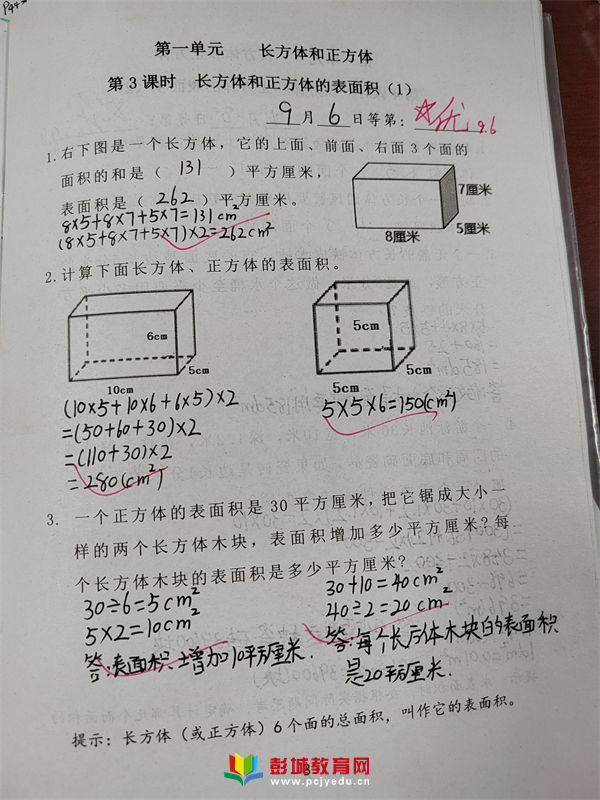 P44
第一单元 长方体和正方体
第3课时 长方体和正方体的表面积（1）
9月6日等第：☆优 9.6
1.右下图是一个长方体，它的上面、前面、右面3个面的
面积的和是（131）平方厘米，
表面积是（262）平方厘米。
8×5+8×7+5×7=131cm²
(8×5+8×7+5×7)×2=262cm²
7厘米
5厘米
8厘米
2.计算下面长方体、正方体的表面积。
6cm
5cm
10cm
5cm
5cm
5cm
(10×5+10×6+6×5)×2
=(50+60+30)×2
=(110+30)×2
=280(cm²)
5×5×6=150(cm²)
3. 一个正方体的表面积是30平方厘米，把它锯成大小一
样的两个长方体木块，表面积增加多少平方厘米？每
个长方体木块的表面积是多少平方厘米？
30÷6=5cm²
5×2=10cm²
答：表面积增加10平方厘米．
30+10=40cm²
40÷2=20cm²
答：每个长方体木块的表面积
是20平方厘米．
提示：长方体（或正方体）6个面的总面积，叫作它的表面积。
3
彭城教育网
www.pcjyedu.cn